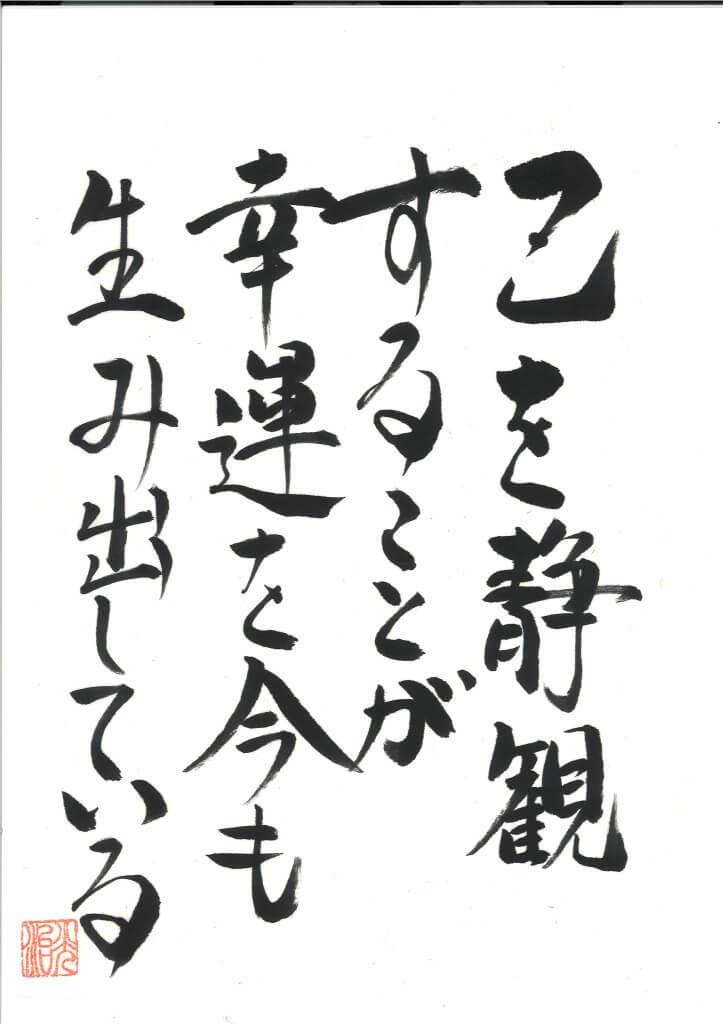 己を静観
することが
幸運を今も
生み出している